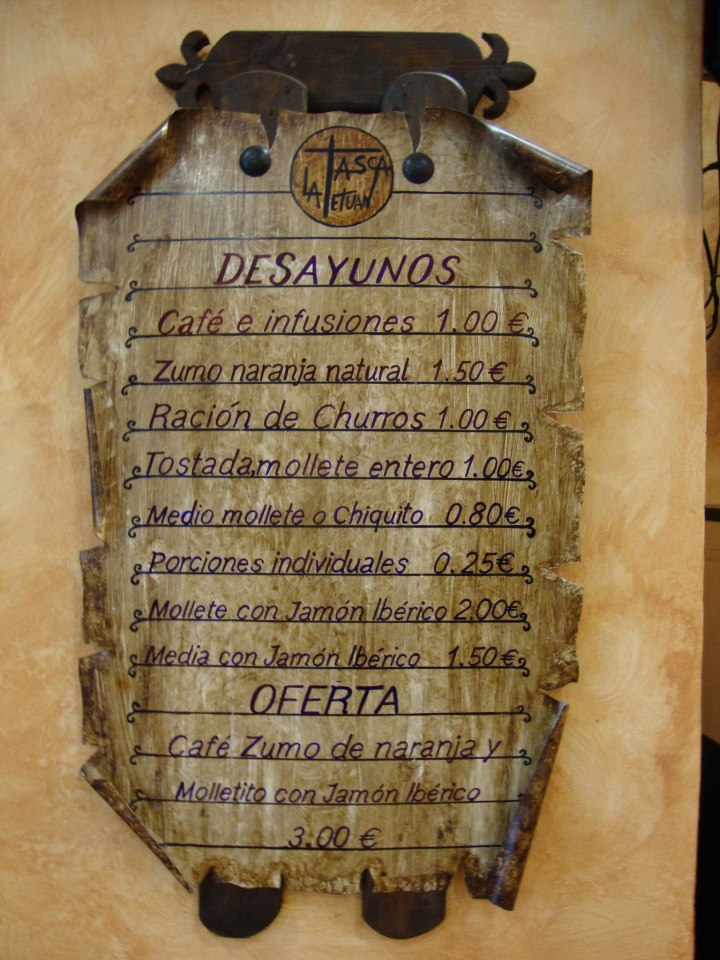 LA TASCA
TETUAN
DESAYUNOS
Café e infusiones 1.00 €
Zumo naranja natural 1.50 €
Ración de Churros 1.00 €
Tostada,mollete entero 1.00€
Medio mollete o Chiquito 0.80€
Porciones individuales 0.25€
Mollete con Jamón Ibérico 2.00€
Media con Jamón Ibérico 1.50€
OFERTA
Café Zumo de naranja y
Molletito con Jamón Ibérico
3.00 €